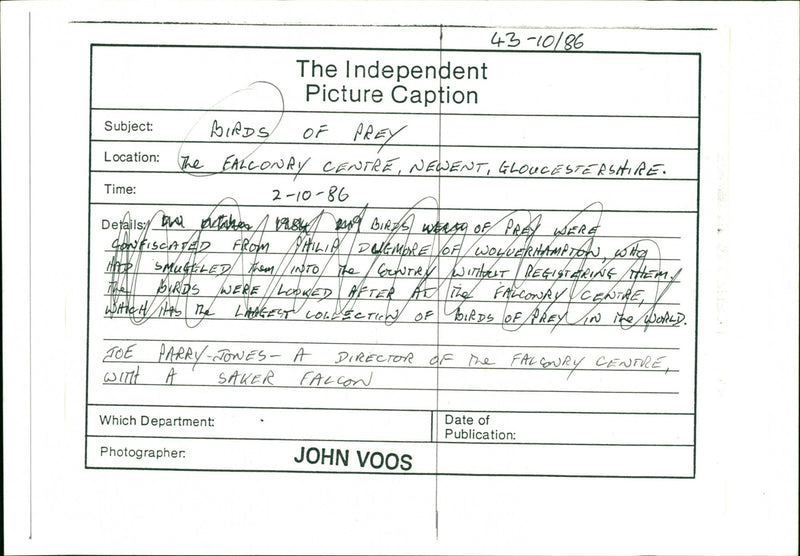 43-10/86
The Independent
Picture Caption
Subject: BIRDS OF PREY
Location: The FALCONRY CENTRE, NEWENT, GLOUCESTERSHIRE.
Time: 2-10-86
Details: BIRDS OF PREY WERE
CONFISCATED FROM PHILIP DUGMORE OF WOLVERHAMPTON, WHO
HAD SMUGGLED Them INTO The COUNTRY WITHOUT REGISTERING THEM.
The BIRDS WERE LOOKED AFTER AT The FALCONRY CENTRE,
WHICH HAS The LARGEST COLLECTION OF BIRDS OF PREY IN The WORLD.
JOE PARRY-JONES - A DIRECTOR OF The FALCONRY CENTRE,
WITH A SAKER FALCON
Which Department:
Date of
Publication:
Photographer: JOHN VOOS